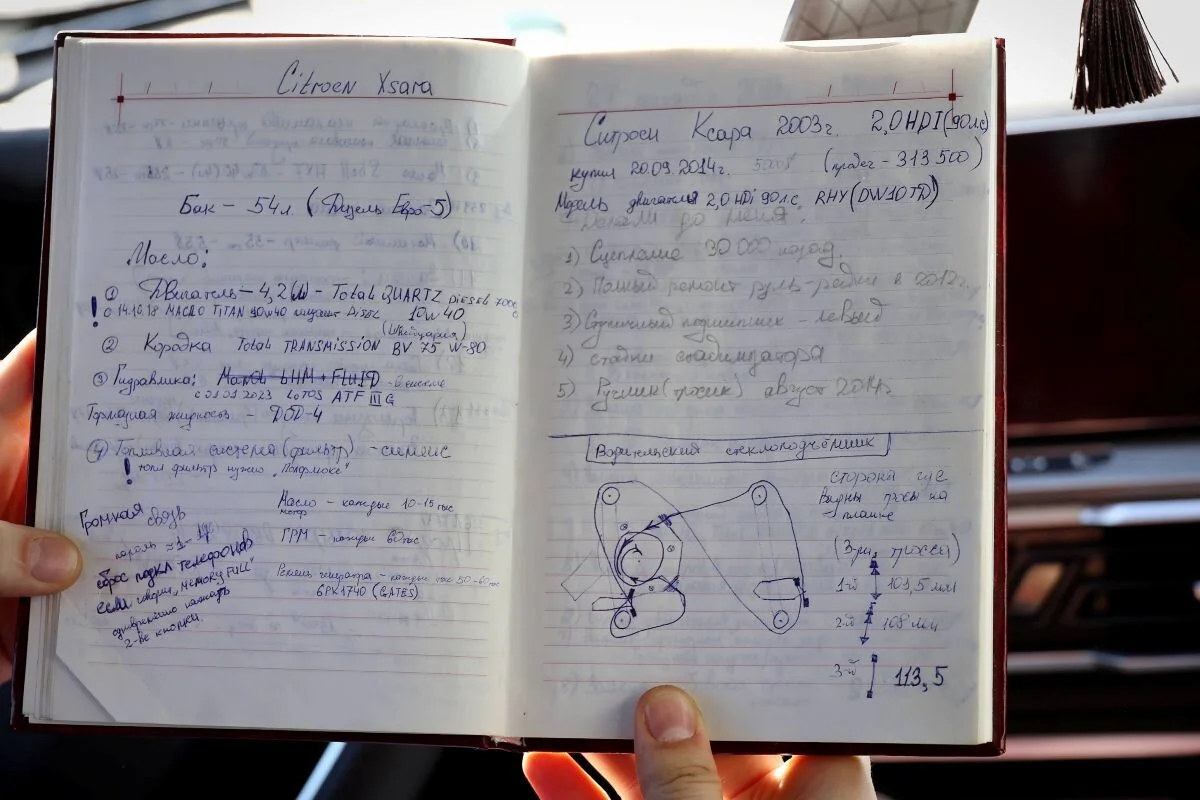 Citroen Xsara
Бак - 54л. (Дизель Евро-5)
Масло:
① Двигатель - 4,2 - Total QUARTZ DIESEL 7000
! с 14.10.18 МАСЛО TITAN 10w40 10w40
(Швейцария)
② Коробка Total TRANSMISSION BV 75 W-80
③ Гидравлика: LHM + FLUID
с 01.01.2023 LOTOS ATF III G
Тормозная жидкость - DOD-4
④ Топливная система (фильтр) - сименс
! топл фильтр нужно "Пюрфлюкс"
Громкая связь
пароль
сброс подкл телефонов
если говорит "MEMORY FULL"
одновременно нажать
2-ве кнопки.
Масло - каждые 10-15 тыс
мотор
ГРМ - каждые 60 тыс
Ремень генератора - каждые тыс 50-60 тыс
6PK1740 (GATES)
Ситроен Ксара 2003г. 2,0 HDI (90лс)
купил 20.09.2014г. 5000$ (пробег - 313 500)
Модель двигателя 2,0 HDi 90л.с. RHY (DW10TD)
Делали до меня.
1) Сцепление 30 000 назад.
2) Полный ремонт руль-рейки в 2012г.
3) Ступичный подшипник - левый
4) стойки стабилизатора
5) Ручник (тросик) август 2014г.
Водительский стеклоподъёмник
сторона где
видны тросы на
планке
(3-ри, троссы)
1-й 101,5 мм
2-й 108 мм
3-й 113,5